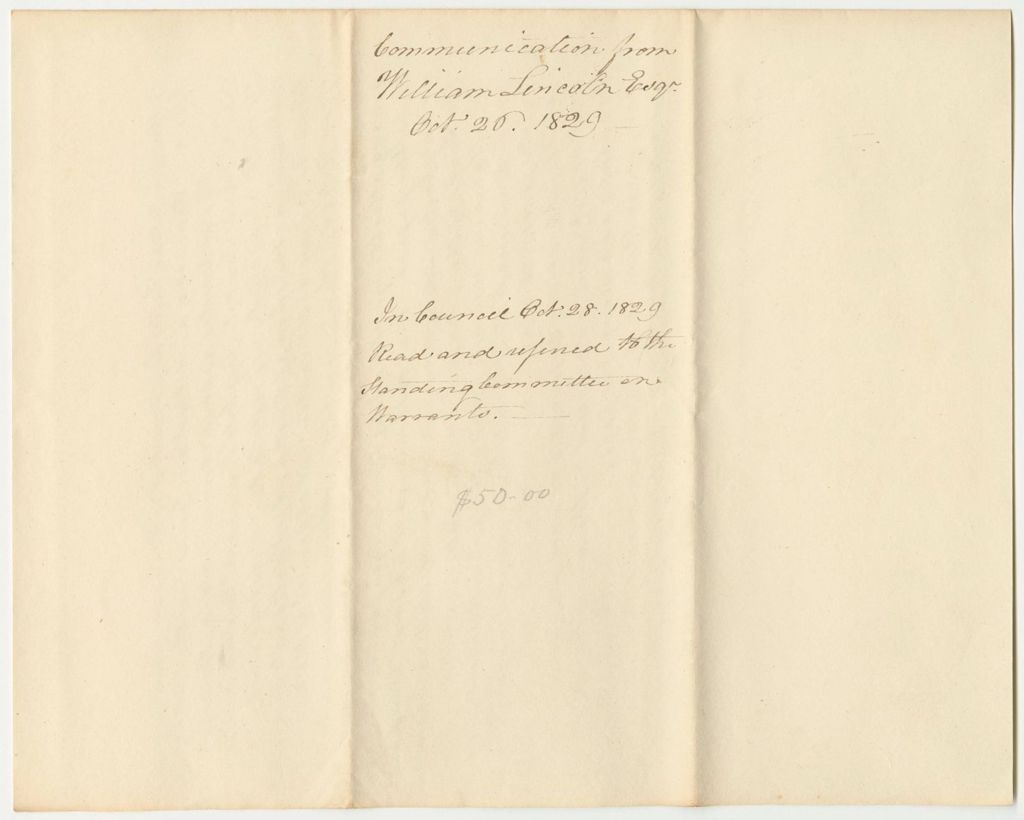 Communication from
William Lincoln Esqr.
Oct. 26. 1829
In Council Oct. 28. 1829
Read and referred to the
Standing Committee on
Warrants.
$50-00